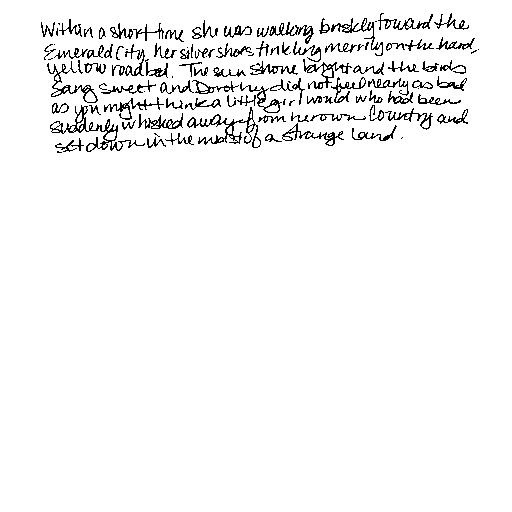 Within a short time she was walking briskly toward the
Emerald City, her silver shoes tinkling merrily on the hard,
yellow road bed. The sun shone bright and the birds
sang sweet and Dorothy did not feel nearly as bad
as you might think a little girl would who had been
suddenly whisked away from her own country and
set down in the midst of a strange land.